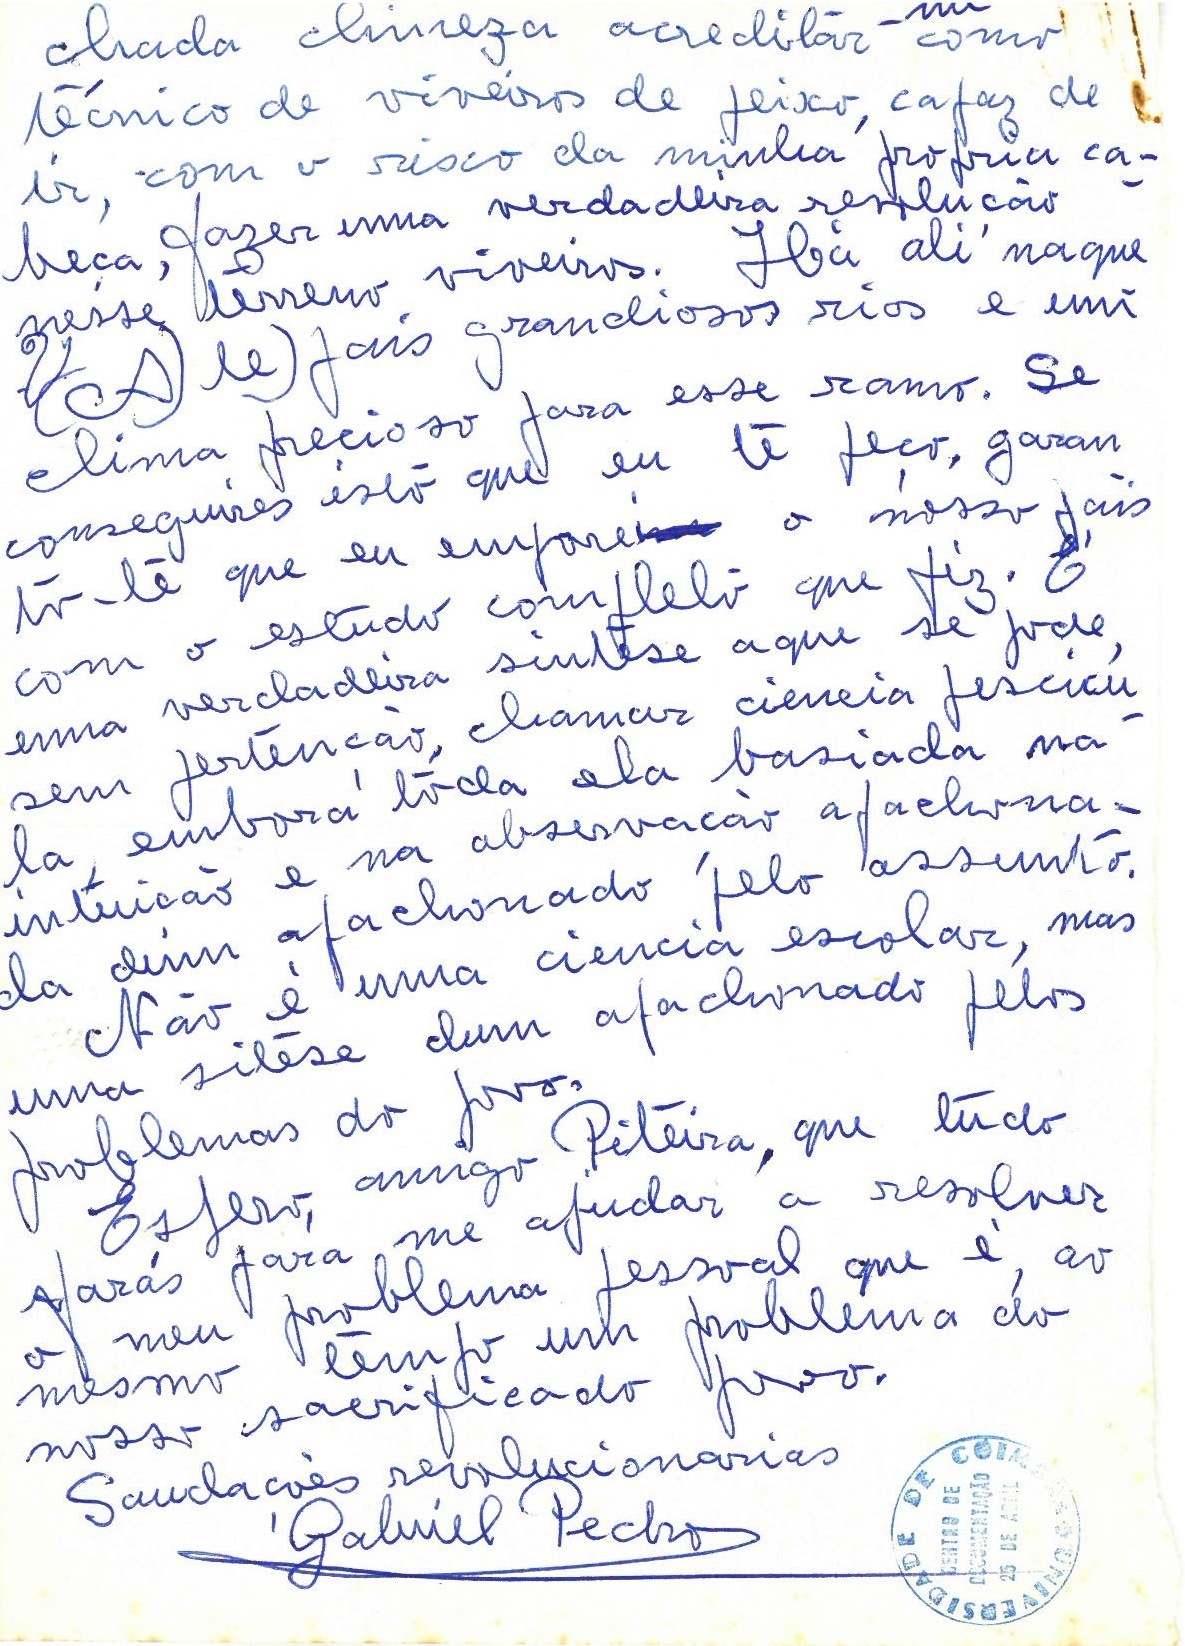 chada chineza acreditar-me como
técnico de viveiros de peixo, capaz de
ir, com o risco da minha própria ca-
beça, fazer uma verdadeira resolução
nesse terreno viveiros. Hà ali naque
(A) le) pais grandiosos rios e um
clima precioso para esse ramo. Se
conseguires isto que eu te peço, garan
to-te que eu emparei o nosso pais
com o estudo completo que fiz. É
uma verdadeira sintese aque se pode,
sem pertenção, chamar ciencia pescicu
la, embora toda ela basiada na
intuicão e na observacão apachona-
da dum apachonado pelo assunto.
Não é uma ciencia escolar, mas
uma sitése dum apachonado pelos
problemas do povo.
Espero, amigo Piteira, que tudo
farás para me ajudar a resolver
o meu problema pessoal que é, ao
mesmo tempo um problema do
nosso sacrificado povo.
Saudacões revolucionarias
Gabriel Pedro
UNIVERSIDADE DE COIMBRA
CENTRO DE
DOCUMENTAÇÃO
25 DE ABRIL